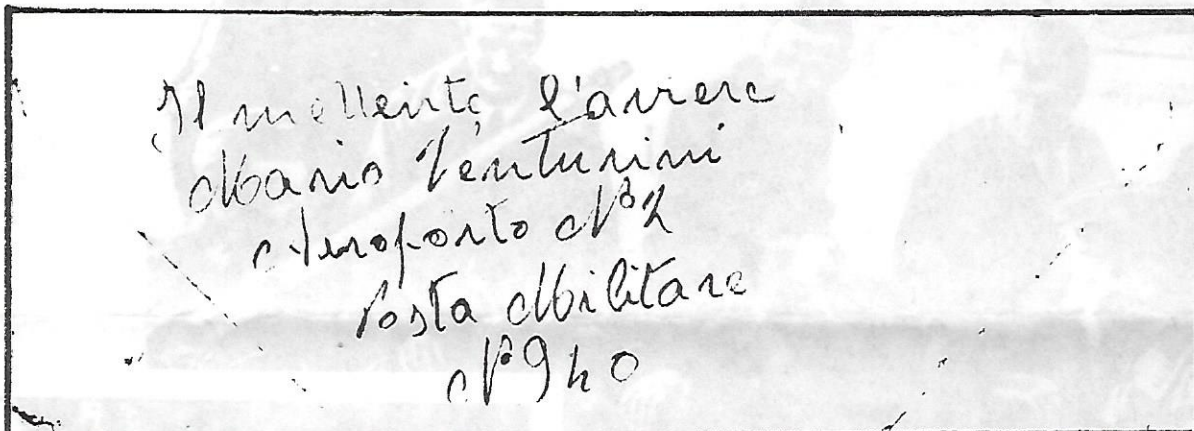 Il mettente l'aviere
Mario Venturini
Aeroporto N° 2
Posta Militare
N° 940